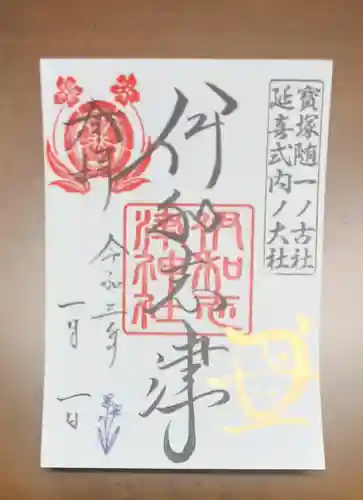 寳塚随一ノ古社
延喜式内ノ大社
伊和志津
伊和志
津神社
奉拝
令和三年
一月一日